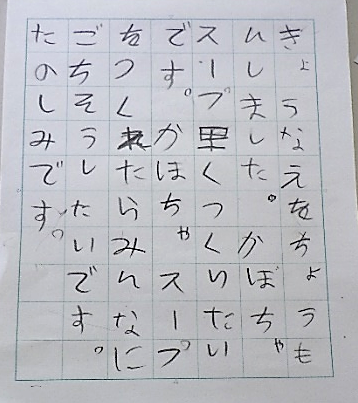 きょうなえをちょうも
んしました。かぼちゃ
スープ里くつくりたい
です。かほちゃスープ
をつくれたらみんなに
ごちそうしたいです。
たのしみです。